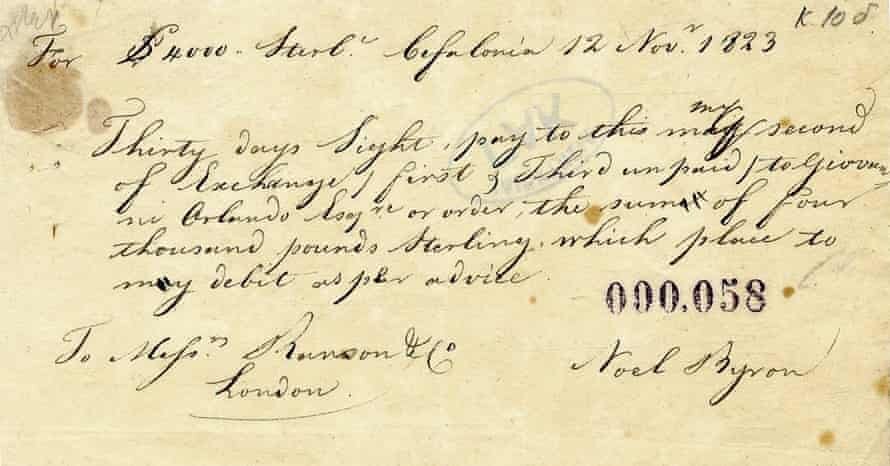 K 108
For £ 4000 - Sterl.r Cefalonia 12 Nov.r 1823
Thirty days Sight, pay to this my second
of Exchange / first & Third unpaid / to Giovan
ni Orlando Esqre or order, the sum of four
thousand pounds Sterling, which place to
my debit as per advice.
000,058
To Messrs Ranson & Co
Noel Byron
London.